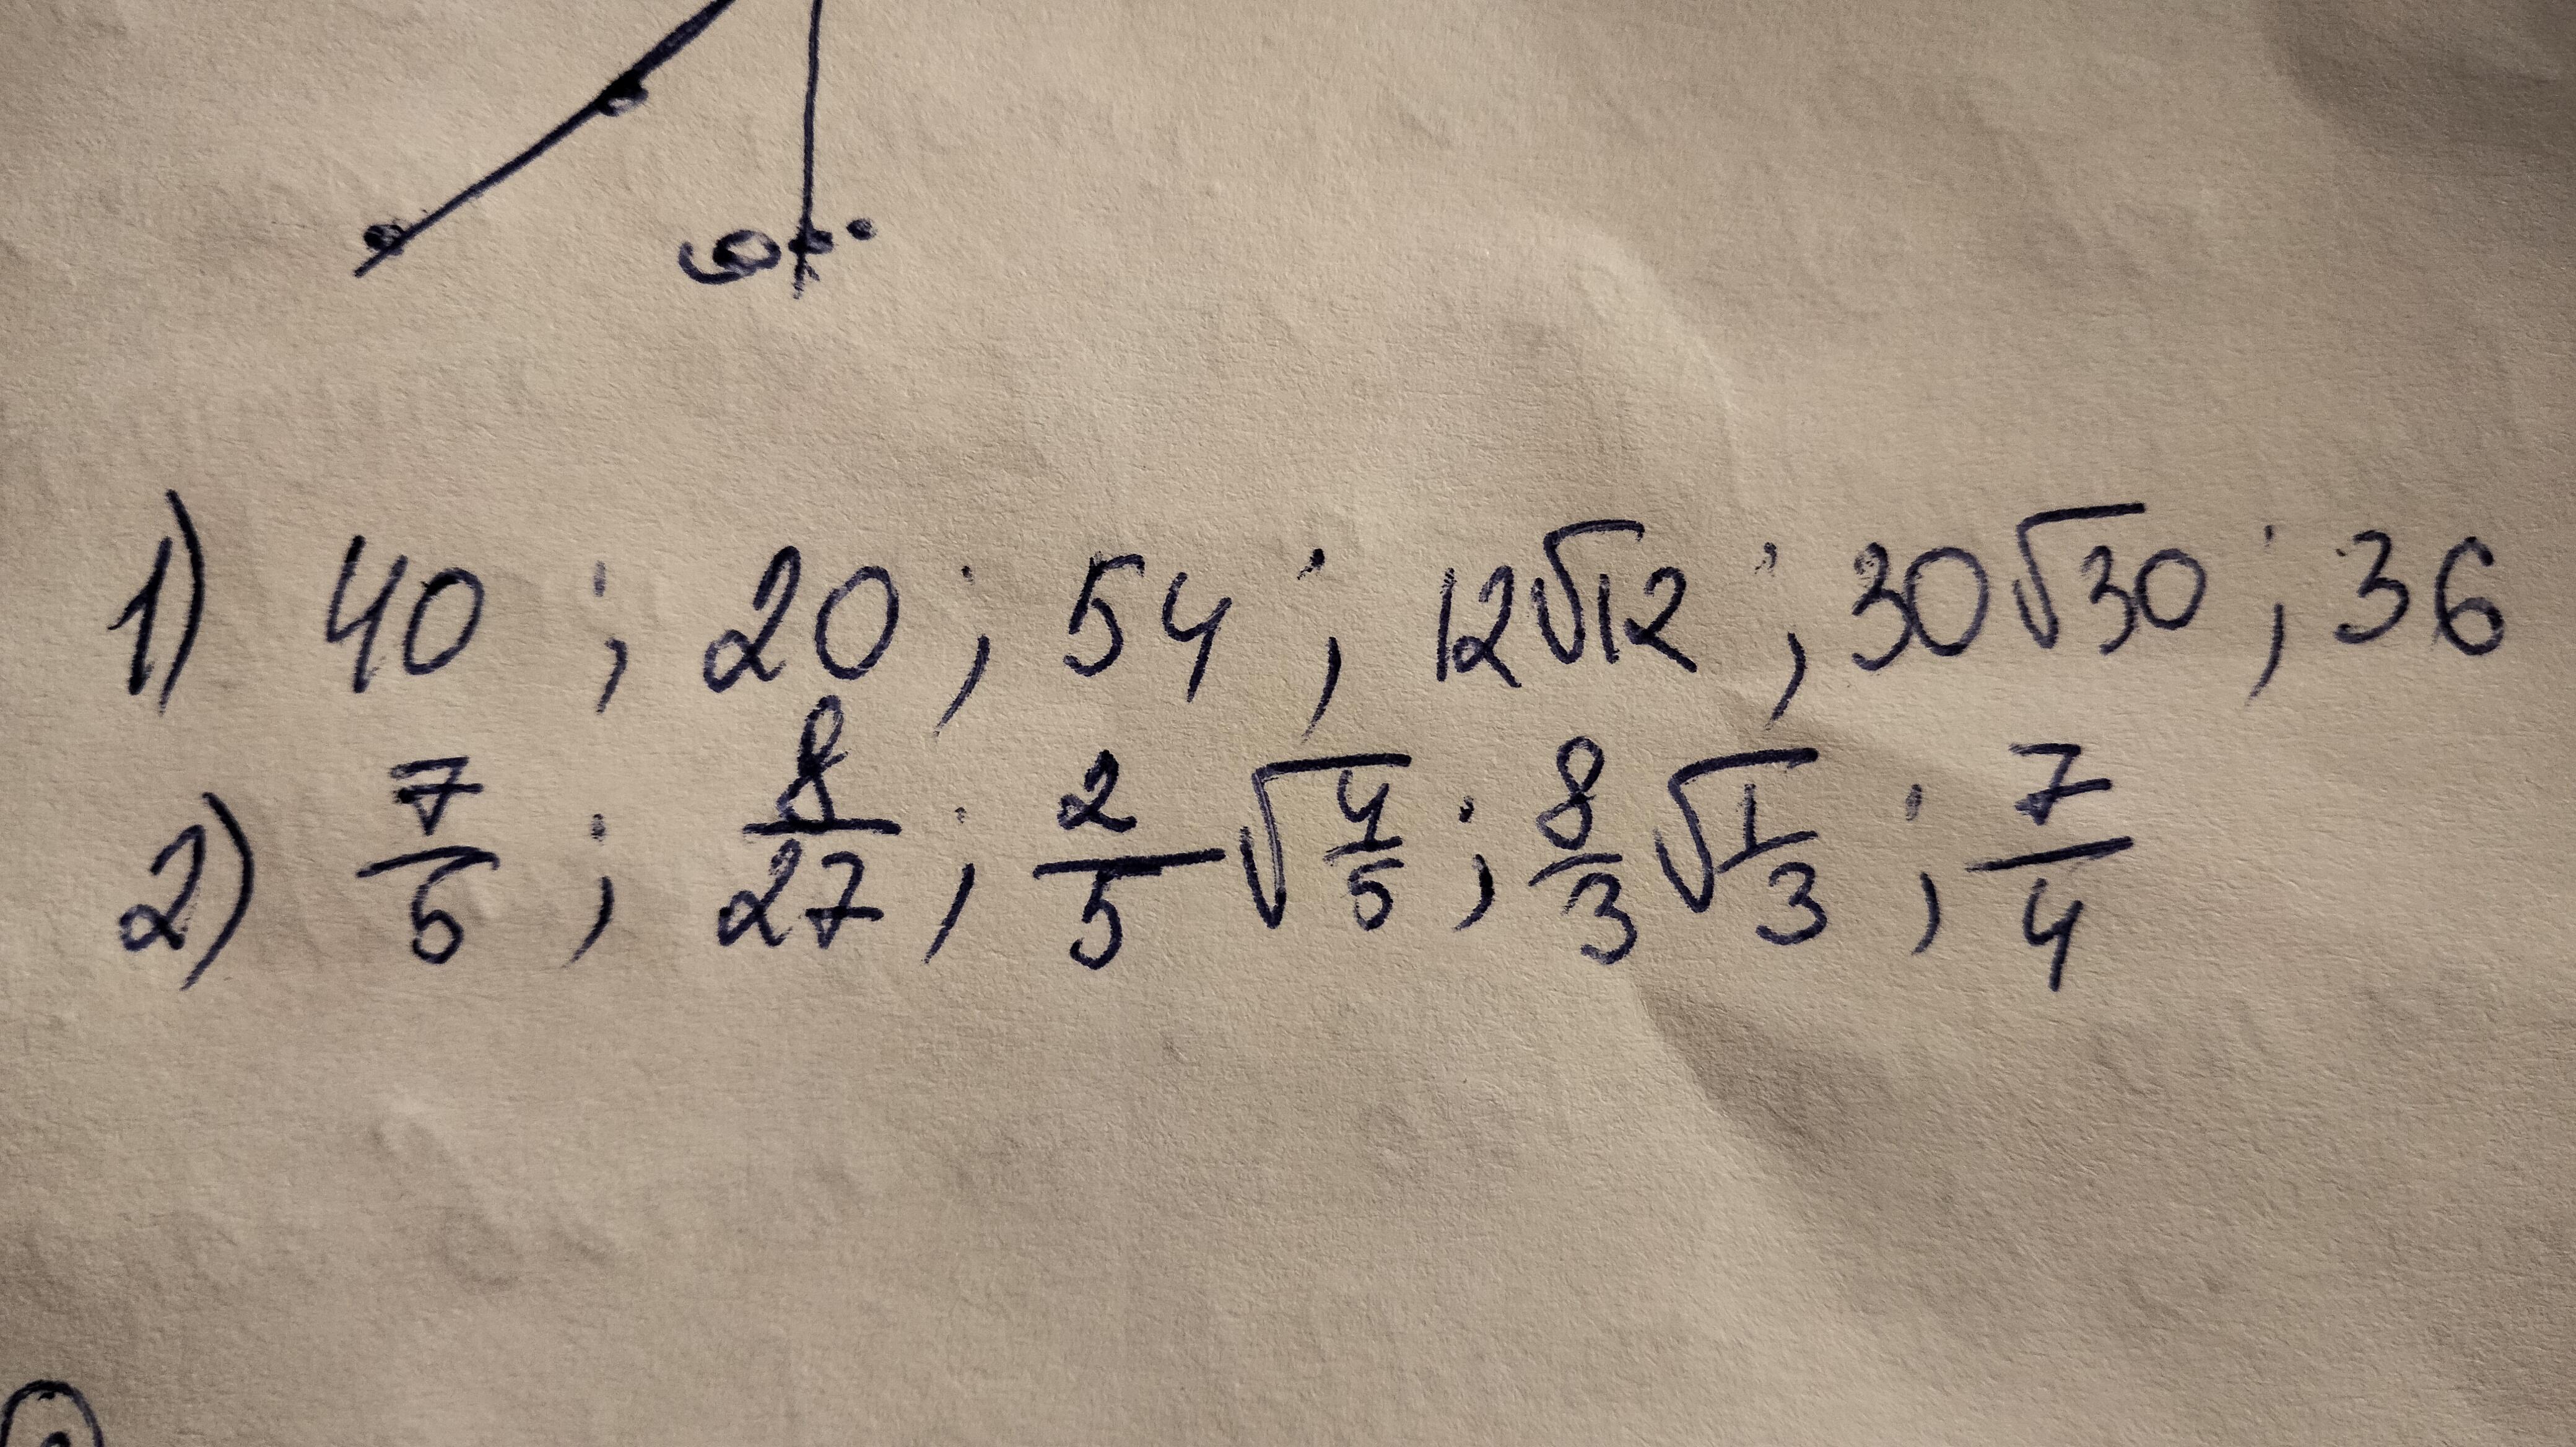 1) 40 ; 20 ; 54 ; 12√12 ; 30√30 ; 36
2) 7/5 ; 8/27 ; 2/5 √4/5 ; 8/3 √1/3 ; 7/4